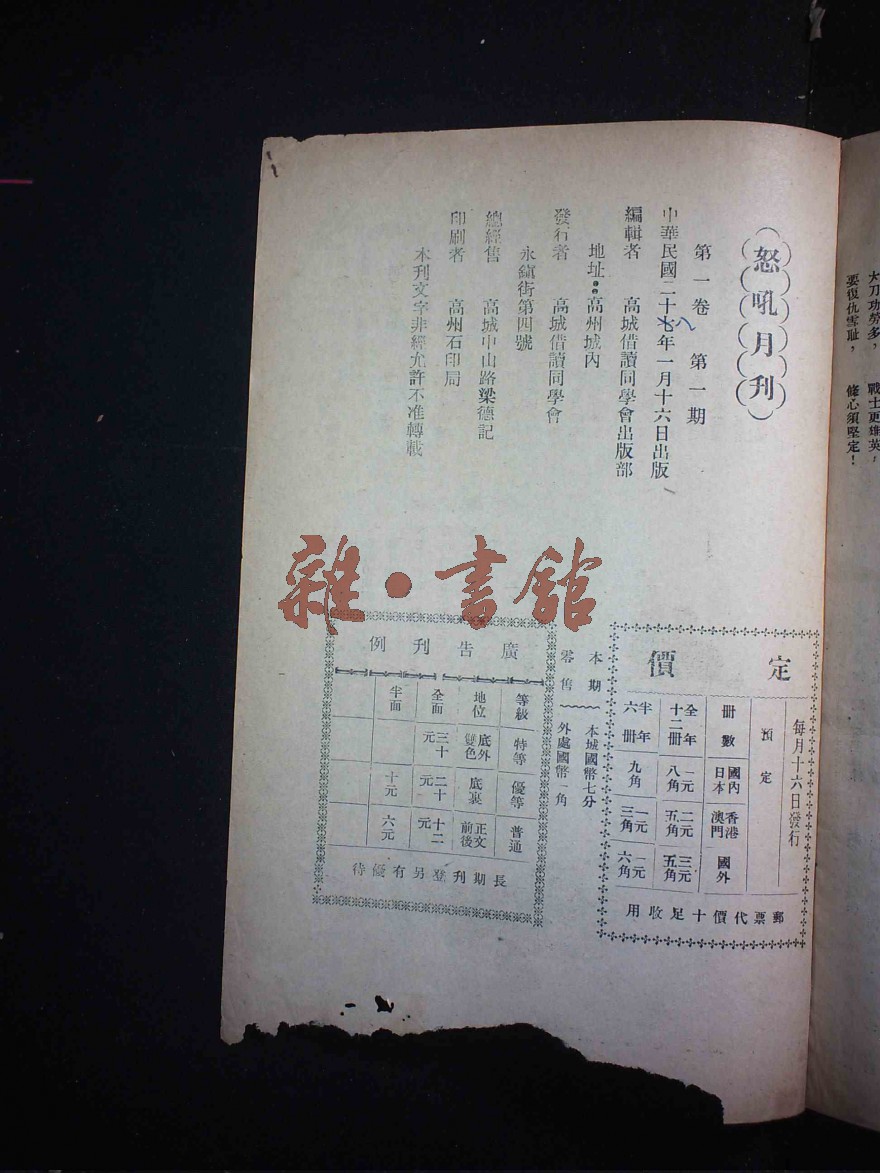 怒吼月刊
第一卷 第一期
中華民國二十八年一月十六日出版
編輯者 高城借讀同學會出版部
地址：高州城內
發行者 高城借讀同學會
永鎭街第四號
總經售 高城中山路梁德記
印刷者 高州石印局
本刊文字非經允許不准轉載
雜·書館
定價
每月十六日發行
預定
冊數 國內日本 香港澳門 國外
全年十二冊 一元八角 二元五角 三元五角
半年六冊 九角 一元三角 一元六角
郵票代價十足收用
本期零售
本城國幣七分
外處國幣一角
廣告刊例
等級 特等 優等 普通
地位 底外雙色 底裏 正文前後
全面 三十元 二十元 十二元
半面 十元 六元
長期刊登另有優待
大刀功勞多， 戰士更雄英，
要復仇雪耻， 條心須堅定！